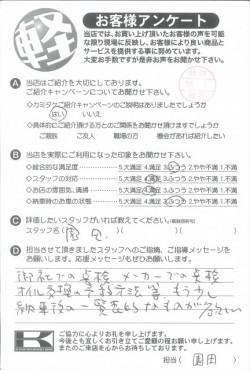 軽
お客様アンケート
当店では、お買い上げ頂いたお客様の声を可能
な限り現場に反映し、お客様により良い商品と
サービスを提供する事に努めています。
大変お手数ですが是非お声をお聞かせ下さい。
A 当店はご紹介を大切にしております。
ご紹介キャンペーンについてお聞かせ下さい。
◇カミタケご紹介キャンペーンのご説明はありましたでしょうか
はい いいえ
◇具体的にご紹介頂ける方との関係をお聞かせ頂けますでしょうか
ご親族 ご友人 職場の方 機会があれば紹介したい
B 当店を実際にご利用になった印象をお聞かせ下さい。
◇総合的な満足度 5.大満足 4.満足 3.ふつう 2.やや不満 1.不満
◇スタッフの対応 5.大満足 4.満足 3.ふつう 2.やや不満 1.不満
◇お店の雰囲気、清掃 5.大満足 4.満足 3.ふつう 2.やや不満 1.不満
◇納車時のお車の状態 5.大満足 4.満足 3.ふつう 2.やや不満 1.不満
C 評価したいスタッフがいれば教えてください。
スタッフ名
D 担当させて頂きましたスタッフへのご指摘、ご指導メッセージを
お願いします。応援メッセージもぜひお願いします。
御社での点検 メーカーでの点検
オイル交換
納車後の一覧表
K
ご協力に心よりお礼を申し上げます。
今後とも宜しくお引き立てご愛顧の程お願い申し上げます。
またのご来店を心からお待ちしております。
担当( 園田 )